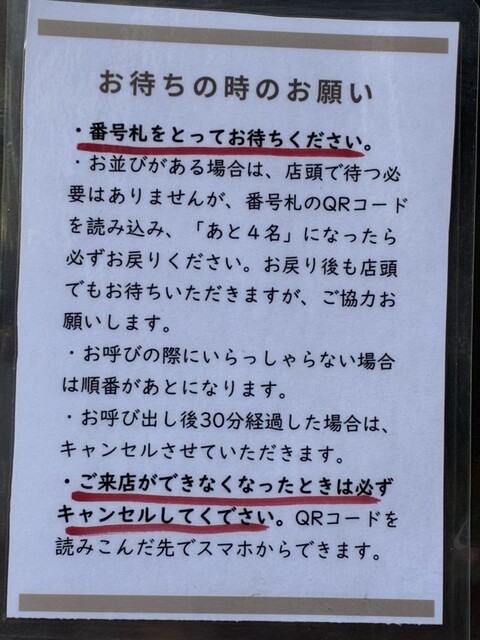 お待ちの時のお願い
・番号札をとってお待ちください。
・お並びがある場合は、店頭で待つ必
要はありませんが、番号札のQRコード
を読み込み、「あと４名」になったら
必ずお戻りください。お戻り後も店頭
でもお待ちいただきますが、ご協力お
願いします。
・お呼びの際にいらっしゃらない場合
は順番があとになります。
・お呼び出し後30分経過した場合は、
キャンセルさせていただきます。
・ご来店ができなくなったときは必ず
キャンセルしてくでさい。QRコードを
読みこんだ先でスマホからできます。